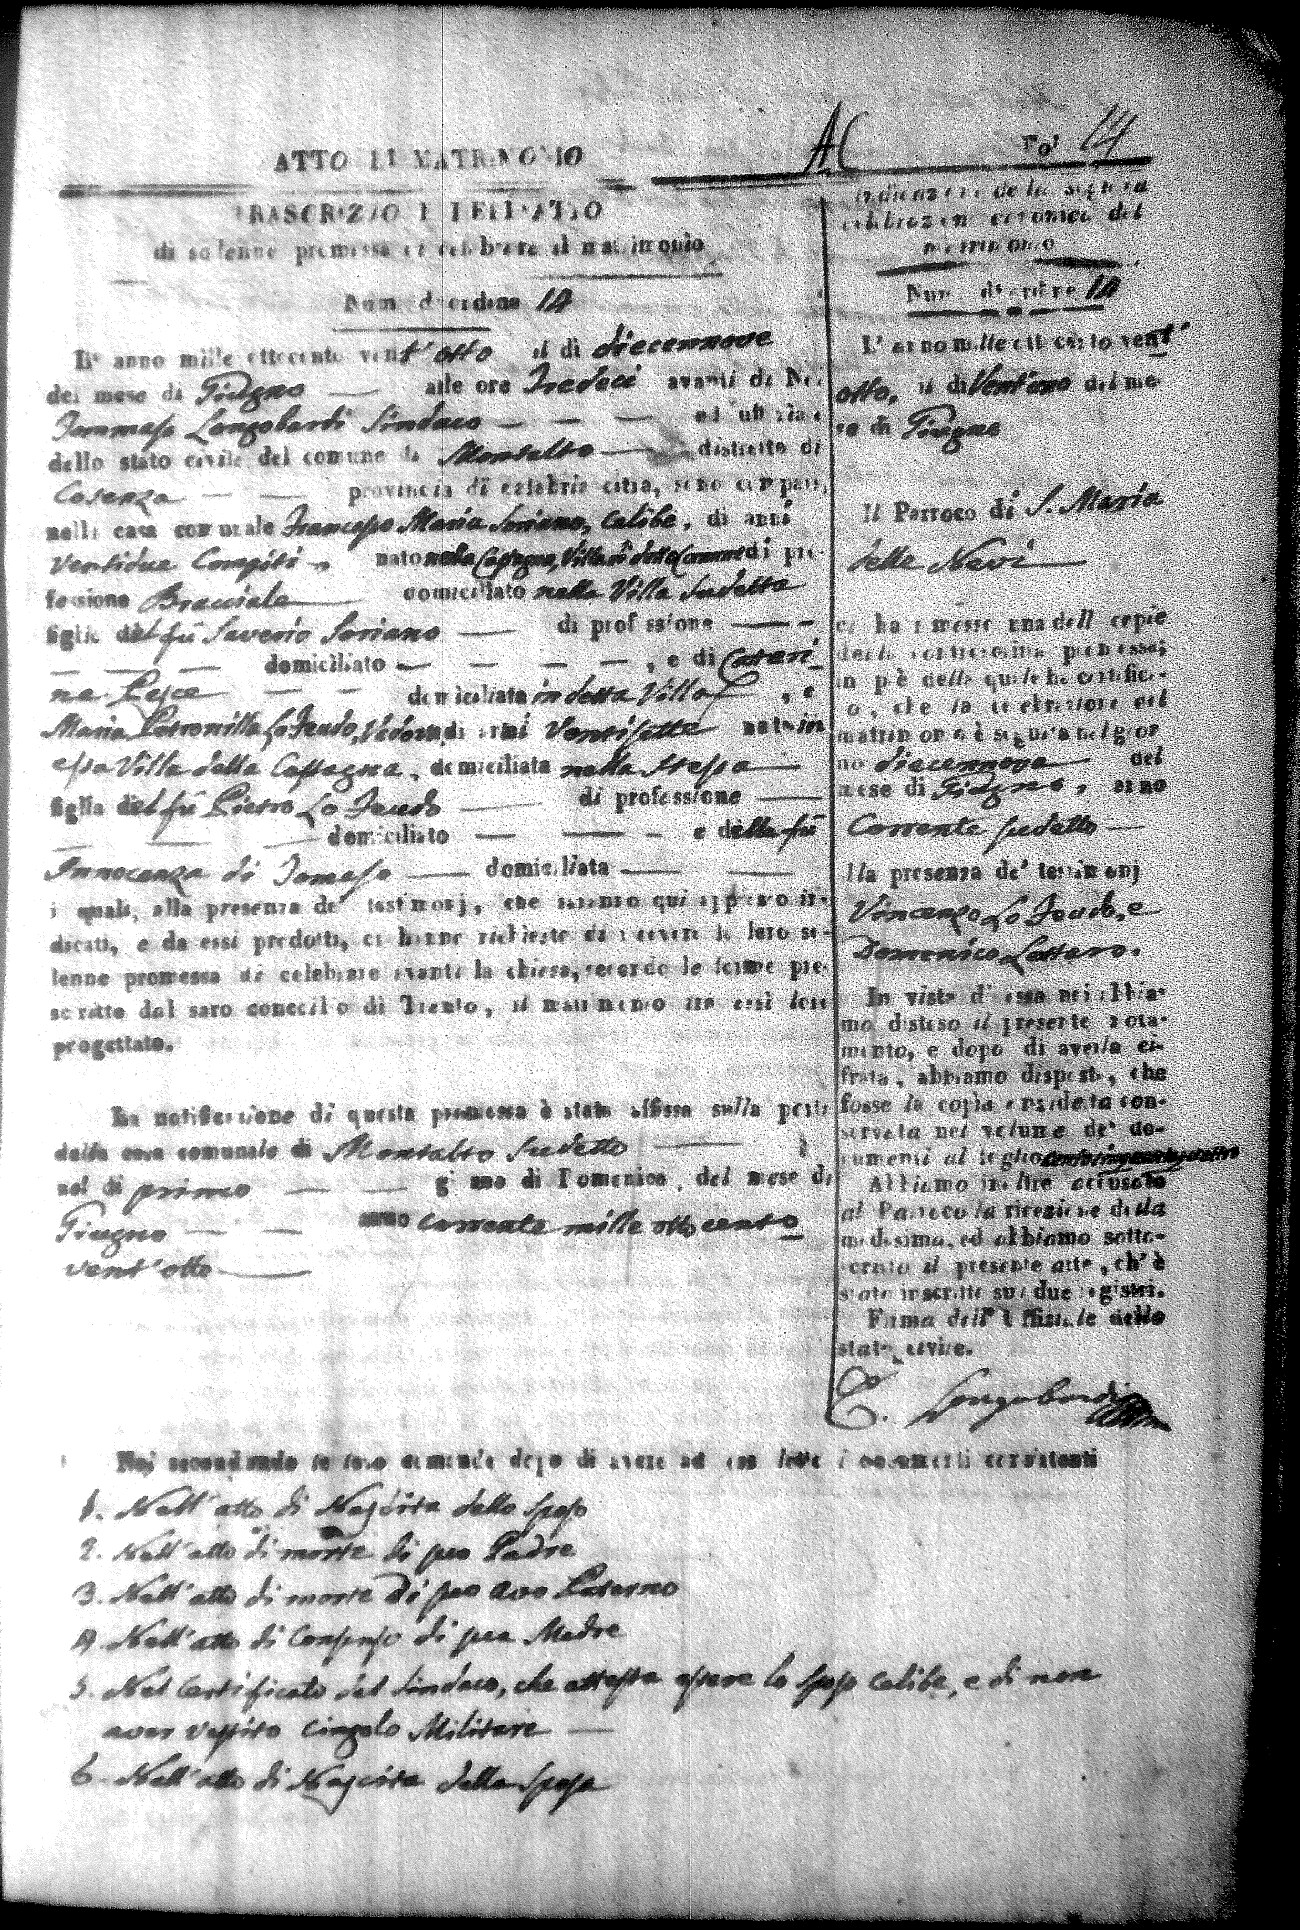 Fol. 14
ATTO DI MATRIMONIO
TRASCRIZIONE DELL'ATTO
di solenne promessa di celebrare il matrimonio
Num. d'ordine 14
L' anno mille ottocento vent'otto il dì diecennove
del mese di Giugno alle ore Tredeci avanti di Noi
Tommaso Longobardi Sindaco ed uffiziale
dello stato civile del comune di Montalto distretto di
Cosenza provincia di calabria citra, sono comparsi
nella casa comunale Francesco Maria Soriano, Celibe, di anni
Ventidue Compiti, nato nella Castagna, Villa di detto Comune di pro-
fessione Bracciale domiciliato nella Villa Sudetta
figlio del fù Saverio Soriano di professione
domiciliato , e di Catari-
na Pesce domiciliata in detta Villa , e
Maria Petronilla Lo Feudo, Vedova, di anni Ventisette nata in
essa Villa della Castagna, domiciliata nella stessa
figlia del fù Pietro Lo Feudo di professione
domiciliato e della fù
Innocenza di Tomaso domiciliata
i quali, alla presenza de' testimonj, che saranno qui appresso in-
dicati, e da essi prodotti, ci hanno richiesto di ricevere la loro so-
lenne promessa di celebrare avanti la chiesa, secondo le forme pre-
scritte dal sacro concilio di Trento, il matrimonio tra essi loro
progettato.
La notificazione di questa promessa è stata affissa sulla porta
della casa comunale di Montalto Sudetto
nel dì primo giorno di Domenica, del mese di
Giugno anno corrente mille otto cento
vent'otto
Indicazione della seguita
celebrazion canonica del
matrimonio
Num. d'ordine 14
L' anno mille ottocento vent'
otto, il dì Vent'uno del me-
se di Giugno
Il Parroco di S. Maria
della Nevi
ci ha rimesse una delle copie
della controscritta promessa;
in piè della quale ha certifica-
to, che la celebrazione del
matrimonio è seguita nel gior-
no diecennove del
mese di Giugno, anno
Corrente sudetto
Alla presenza de' testimonj
Vincenzo Lo Feudo, e
Domenico Lattaro.
In vista di essa noi abbia-
mo disteso il presente nota-
mento, e dopo di averla ci-
frata, abbiamo disposto, che
fosse la copia anzidetta con-
servata nel volume de' do-
cumenti al foglio
Abbiamo inoltre accusato
al Parroco la ricezione della
medesima, ed abbiamo sotto-
scritto il presente atto, ch' è
stato inscritto sui due registri.
Firma dell' Uffiziale dello
stato civile.
T. Longobardi
Noi secondando la loro domanda dopo di avere ad essi letto i documenti consistenti
1. Nell'atto di Nascita dello sposo
2. Nell'atto di morte di suo Padre
3. Nell'atto di morte di suo avo Paterno
4. Nell'atto di Consenso di sua Madre
5. Nel Certificato del Sindaco, che attesta essere lo sposo celibe, e di non
aver vestito cingolo Militare
6. Nell'atto di Nascita della sposa